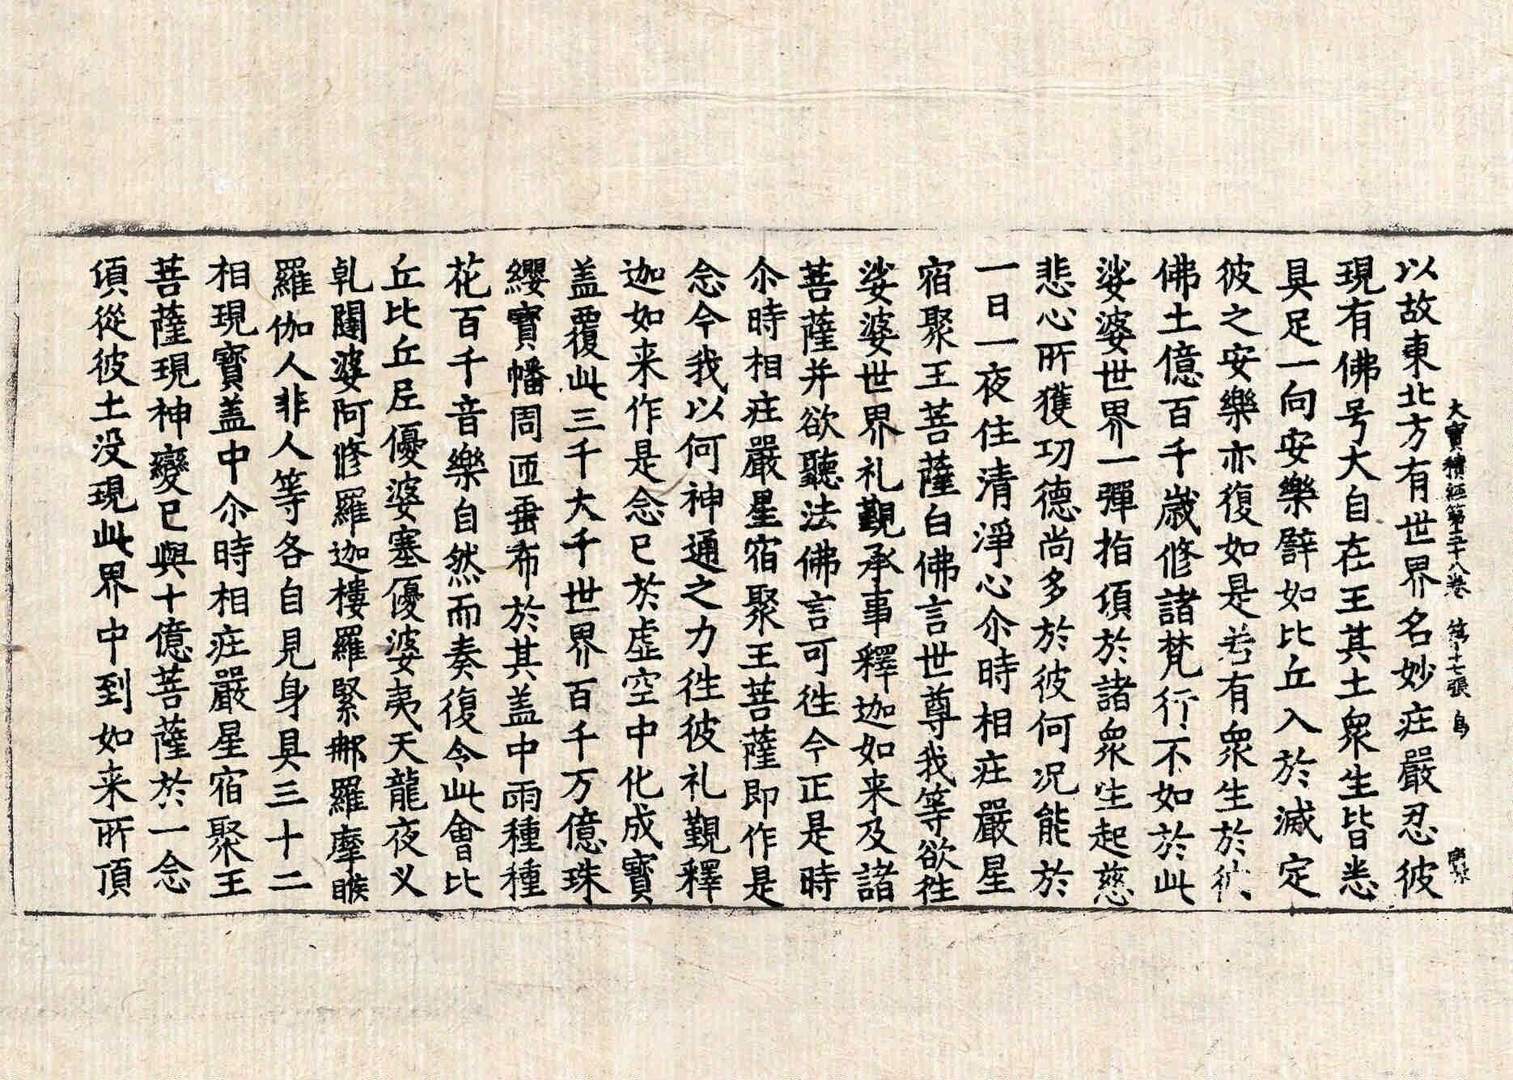 大寶積經第五十八卷 第十七張 鳥
以故東北方有世界名妙庄嚴忍彼
現有佛号大自在王其土衆生皆悉
具足一向安樂譬如比丘入於滅定
彼之安樂亦復如是若有衆生於彼
佛土億百千歲修諸梵行不如於此
娑婆世界一彈指頃於諸衆生起慈
悲心所獲功德尚多於彼何况能於
一日一夜住清淨心尒時相庄嚴星
宿聚王菩薩白佛言世尊我等欲往
娑婆世界礼覲承事釋迦如来及諸
菩薩并欲聽法佛言可往今正是時
尒時相庄嚴星宿聚王菩薩即作是
念今我以何神通之力往彼礼覲釋
迦如来作是念已於虛空中化成寶
盖覆此三千大千世界百千万億珠
纓寶幡周匝垂布於其盖中雨種種
花百千音樂自然而奏復令此會比
丘比丘尼優婆塞優婆夷天龍夜叉
乹闥婆阿修羅迦樓羅緊那羅摩睺
羅伽人非人等各自見身具三十二
相現寶盖中尒時相庄嚴星宿聚王
菩薩現神變已與十億菩薩於一念
頃從彼土没現此界中到如来所頂